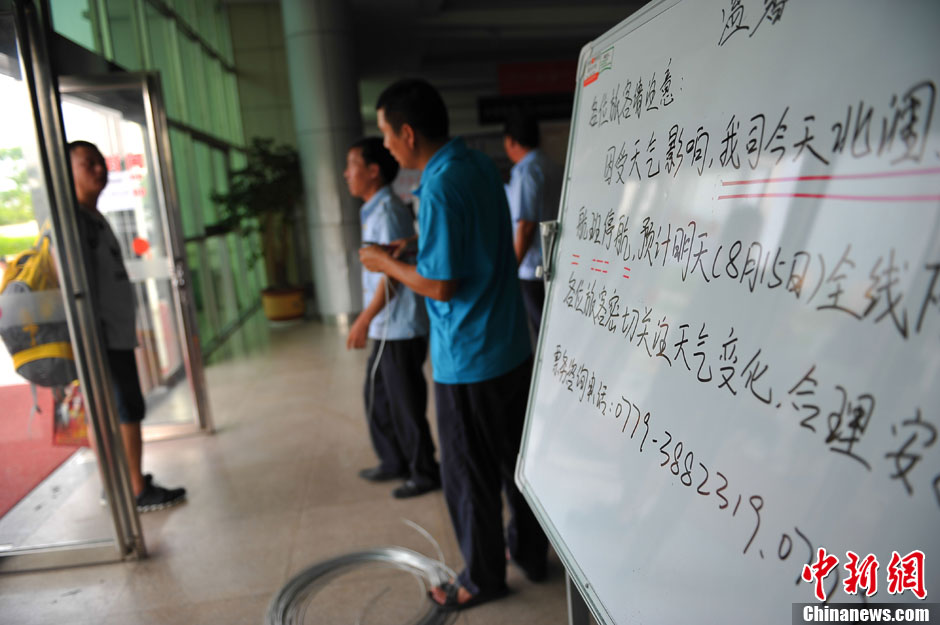 温馨
各位旅客请注意：
因受天气影响，我司今天北涠
航班停航，预计明天（8月15日）全线
各位旅客密切关注天气变化，合理安
票务咨询电话：0779-3882319、07
中新网
Chinanews.com